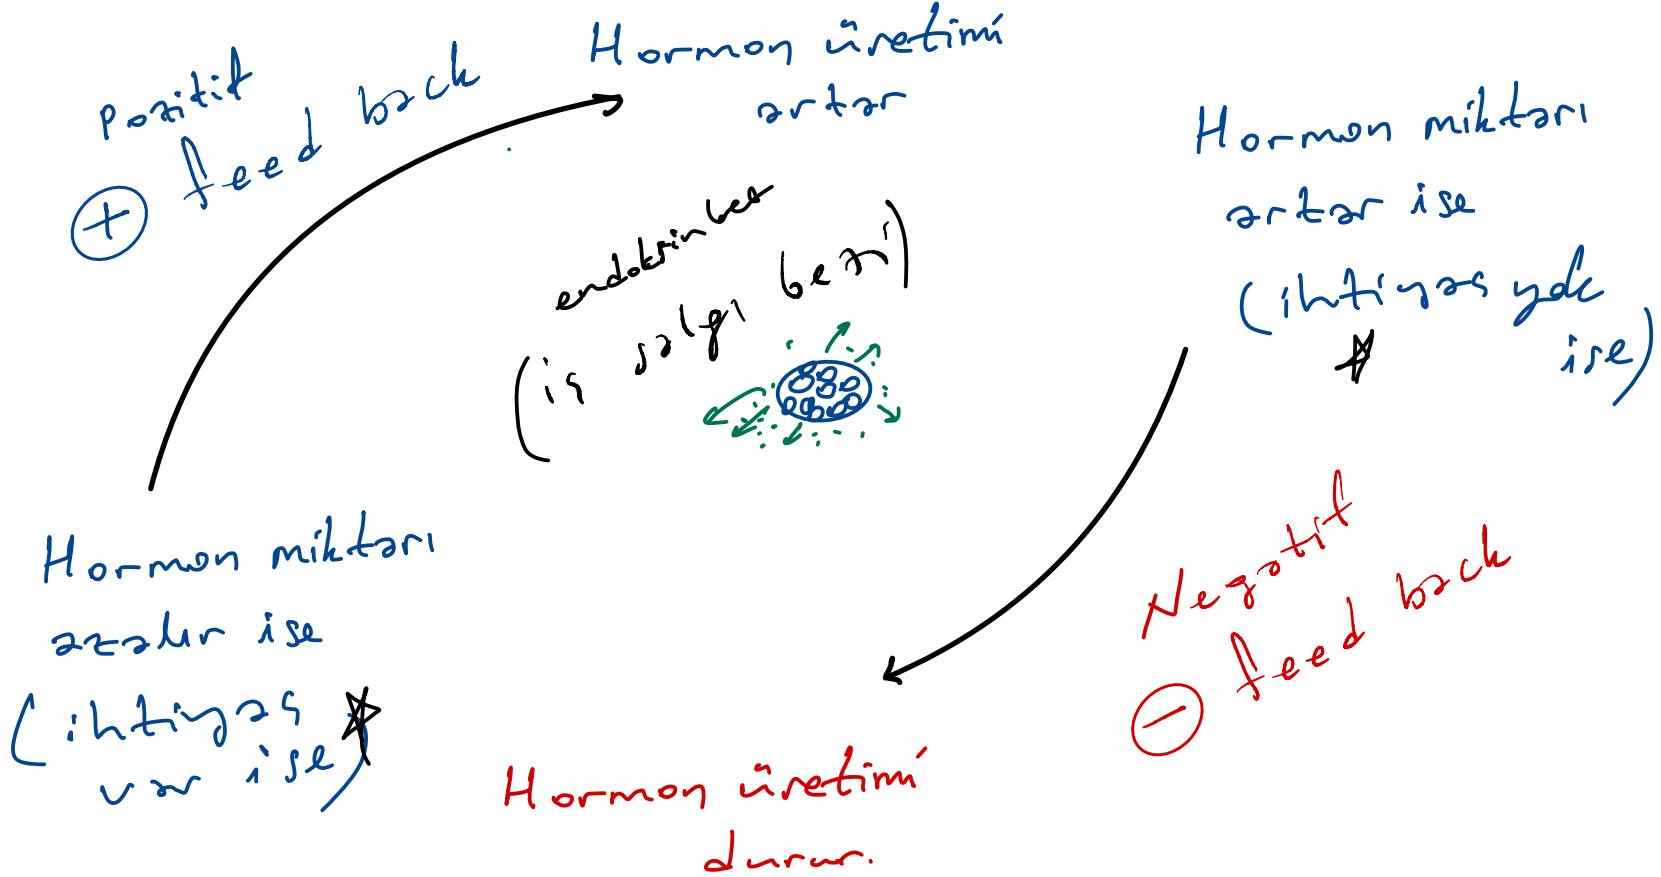 Pozitif
+ feed back
Hormon üretimi
artar
Hormon miktarı
artar ise
(ihtiyaç yok
ise)
endokrin bez
(iç salgı bezi)
Hormon miktarı
azalır ise
(ihtiyaç
var ise)
Negatif
- feed back
Hormon üretimi
durur.